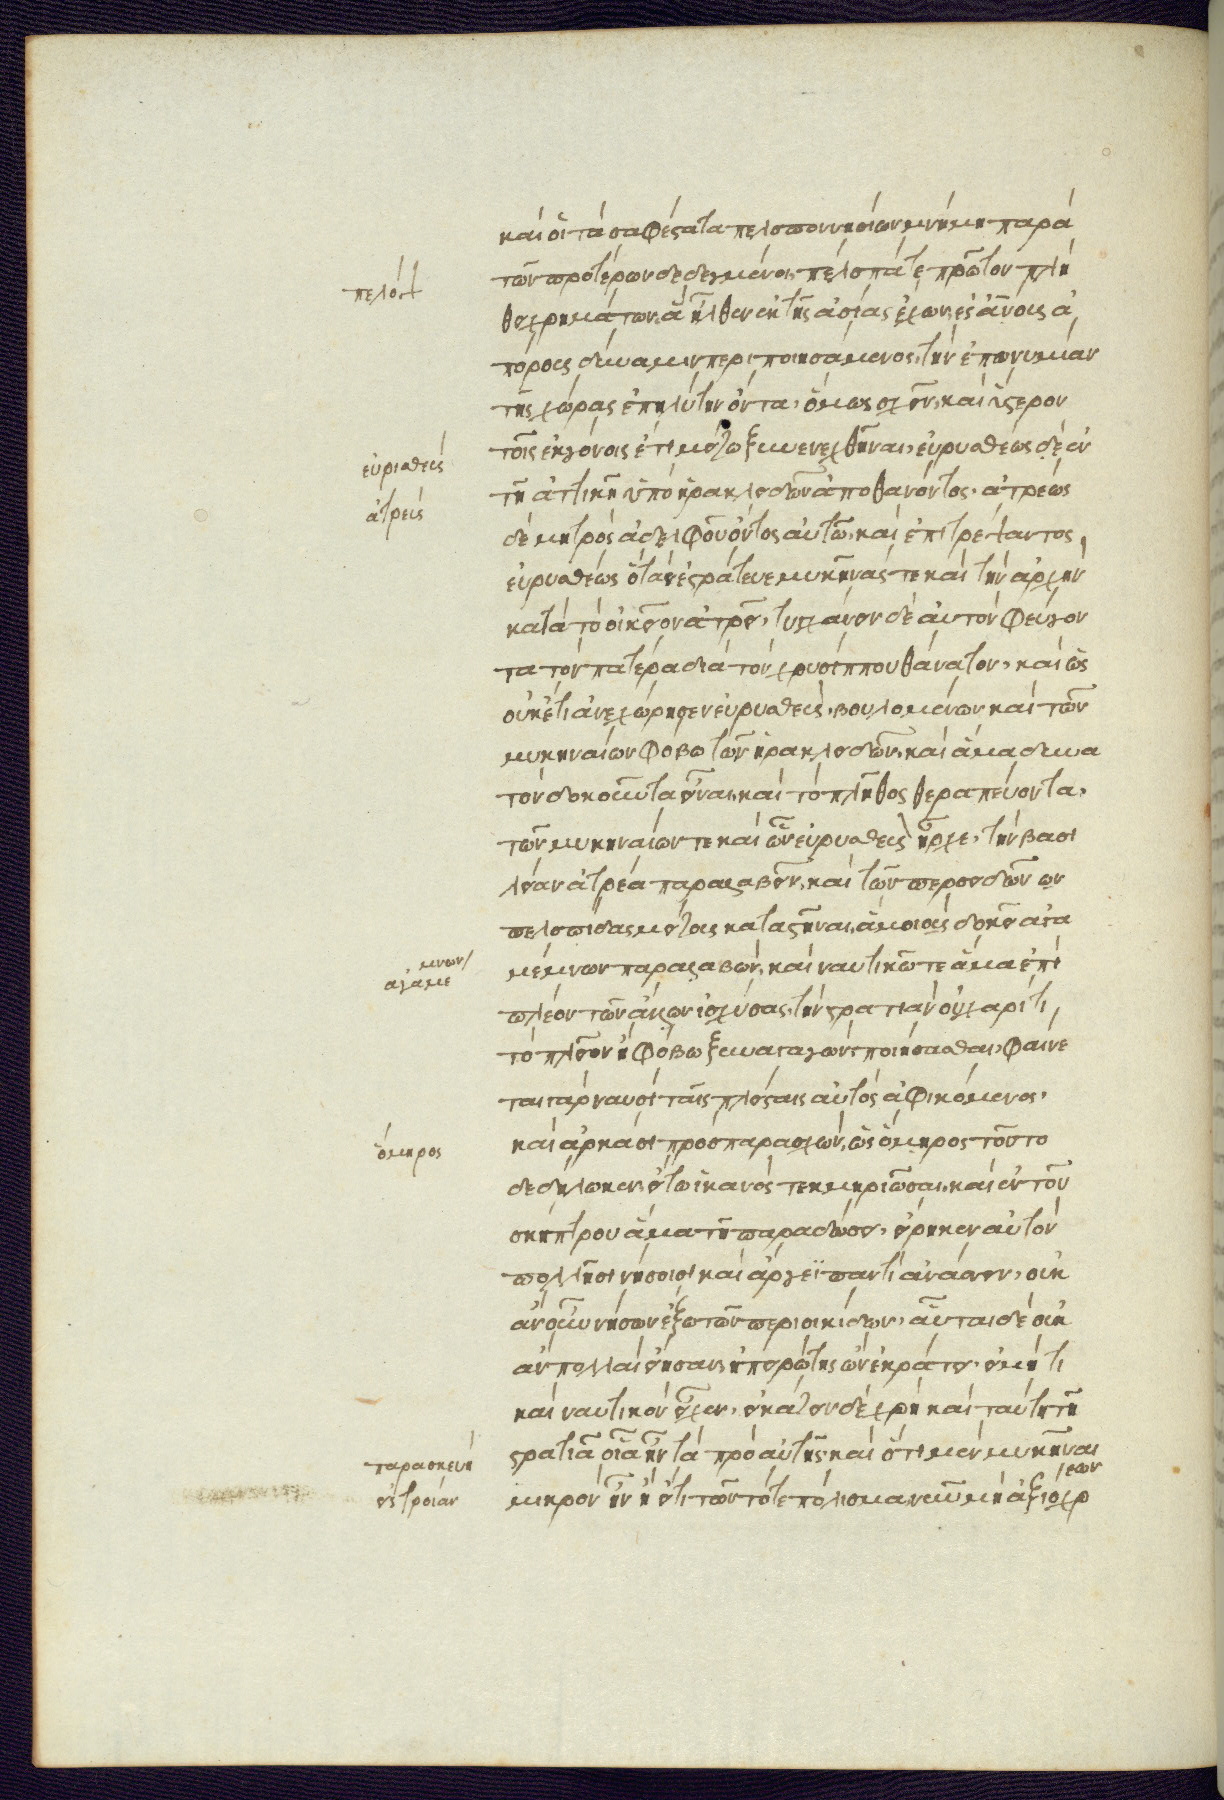 καὶ οἱ τὰ σαφέστατα πελοποννησίων μνήμη παρὰ
τῶν προτέρων δεδεγμένοι, πέλοπά τε πρῶτον πλή
πέλοψ
θει χρημάτων, ἃ ἦλθεν ἐκ τῆς ἀσίας ἔχων, ἐς ἀνους ἀ
πόρους δύναμιν περιποιησάμενος, τὴν ἐπωνυμίαν
τῆς χώρας ἐπηλύτην ὄντα, ὅμως σχεῖν, καὶ ὕστερον
τοῖς ἐκγόνοις ἔτι μείζω ξυνενεχθῆναι, εὐρυσθέως δὲ ἐν
εὐρισθεύς
τῇ ἀττικῇ ὑπὸ ἡρακλειδῶν ἀποθανόντος, ἀτρέως
ἀτρεύς
δὲ μητρὸς ἀδελφοῦ ὄντος αὐτῶ, καὶ ἐπιτρέψαντος
εὐρυσθέως ὅτ' ἀνεστράτευε μυκήνας τε καὶ τὴν ἀρχὴν
κατὰ τὸ οἰκεῖον ἀτρεῖ, τυγχάνειν δὲ αὐτὸν φεύγον
τα τὸν πατέρα διὰ τὸν χρυσίππου θάνατον, καὶ ὡς
οὐκέτι ἀνεχώρησεν εὐρυσθεὺς, βουλομένων καὶ τῶν
μυκηναίων φόβω τῶν ἡρακλειδῶν, καὶ ἅμα δυνα
τὸν δοκοῦντα εἶναι, καὶ τὸ πλῆθος θεραπεύοντα,
τῶν μυκηναίων τε καὶ ὧν εὐρυσθεὺς ἦρχε, τὴν βασι
λείαν ἀτρέα παραλαβεῖν, καὶ τῶν περσειδῶν
πελοπίδας μείζους καταστῆναι, ἅ μοι δοκεῖ ἀγα
μέμνων παραλαβὼν, καὶ ναυτικῶ τε ἅμα ἐπὶ
αγαμε
μνων
πλέον τῶν ἄλλων ἰσχύσας, τὴν στρατιὰν οὐ χάριτι
τὸ πλεῖον ἢ φόβω ξυναγαγὼν ποιήσασθαι, φαίνε
ται γὰρ ναυσὶ ταῖς πλείσταις αὐτὸς ἀφικόμενος,
καὶ ἀρκάσι προσπαρασχὼν, ὡς ὅμηρος τοῦτο
ὅμηρος
δεδήλωκεν, εἴ τω ἱκανὸς τεκμηριῶσαι, καὶ ἐν τοῦ
σκήπτρου ἅμα τῆ παραδόσει, εἴρηκεν αὐτὸν
πολλῆσι νήσοισι καὶ ἄργεϊ παντὶ ἀνάσσειν, οὐκ
ἂν οὖν νήσων ἔξω τῶν περιοικίδων, αὗται δὲ οὐκ
ἂν πολλαὶ εἴησαν, ἠπειρώτης ὢν ἐκράτει, εἰ μή τι
καὶ ναυτικὸν εἶχεν, εἰκάζειν δὲ χρὴ καὶ ταύτη τῆ
στρατιᾶ οἷα ἦν τὰ πρὸ αὐτῆς, καὶ ὅτι μὲν μυκῆναι
παρασκευὴ
μικρὸν ἦν ἢ εἴ τι τῶν τότε πόλισμα νῦν μὴ ἀξιόχρ
εων
εἰς τροίαν